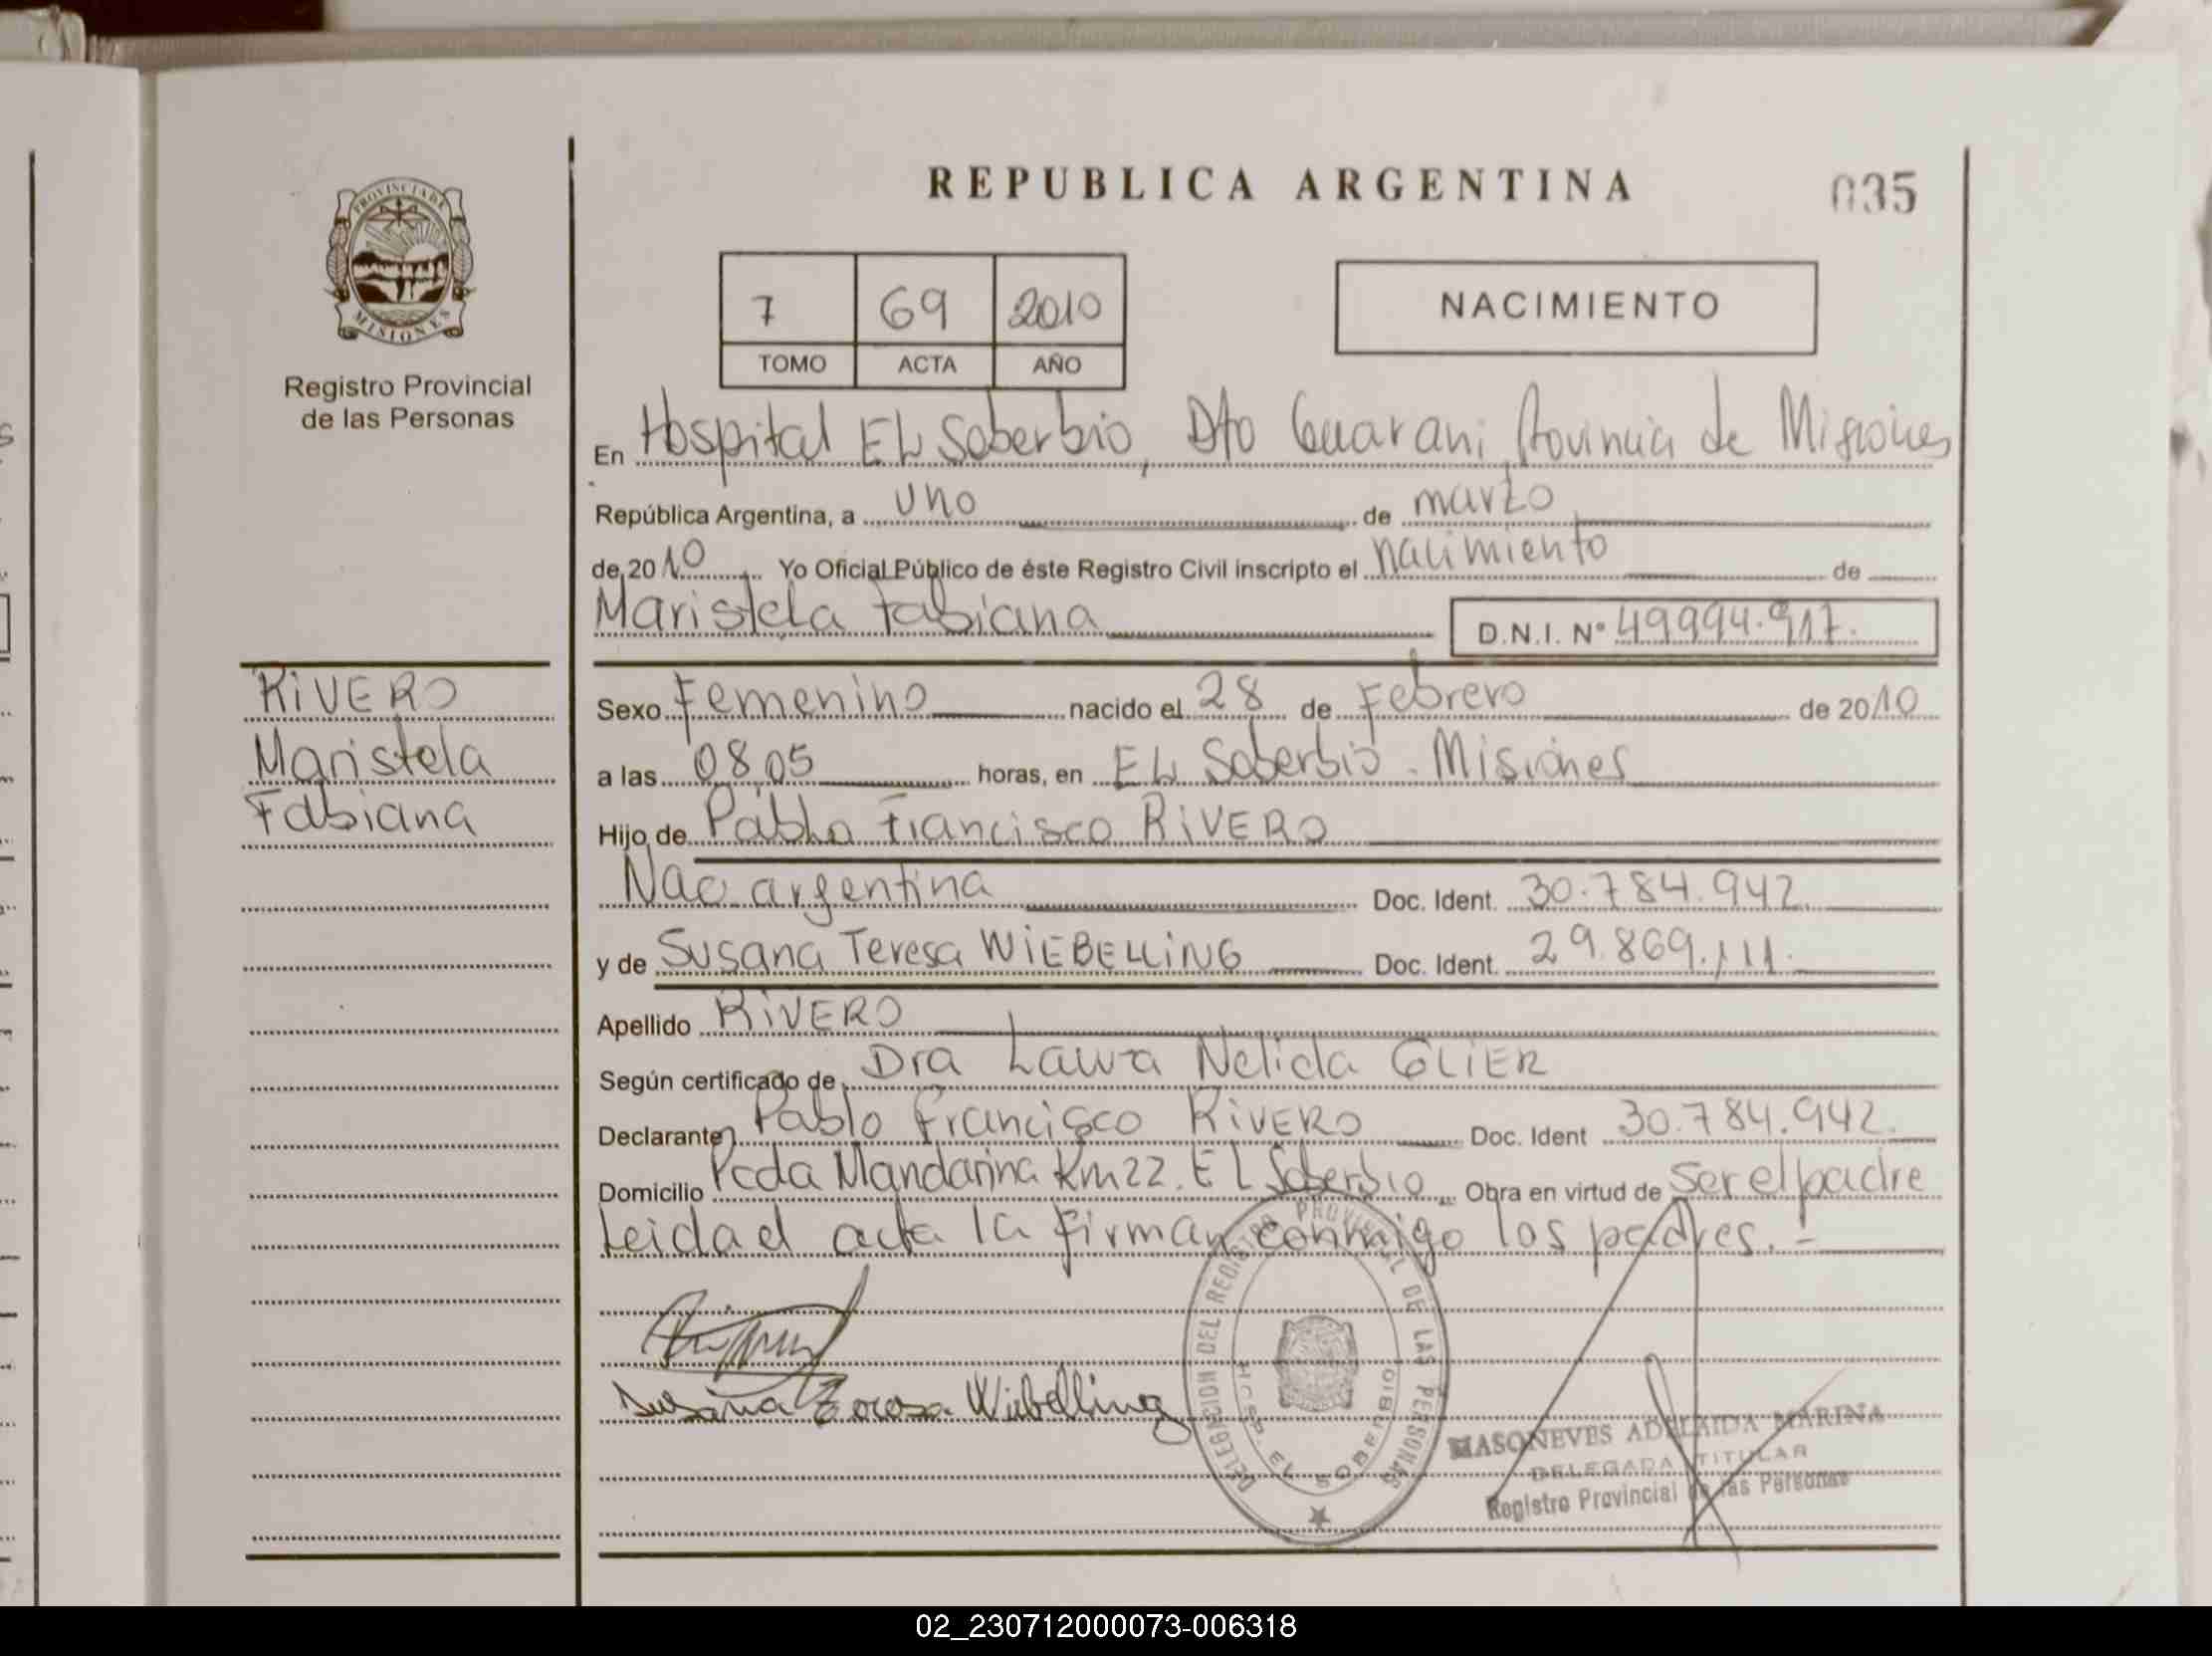 REPUBLICA ARGENTINA
035
PROVINCIA DE
MISIONES
Registro Provincial
de las Personas
7 69 2010
TOMO ACTA AÑO
NACIMIENTO
En Hospital EL Soberbio, Dto Guarani, Provincia de Misiones
República Argentina, a uno de marzo
de 2010 Yo Oficial Público de éste Registro Civil inscripto el nacimiento de
Maristela Fabiana D.N.I. Nº 49994.917.
RIVERO
Maristela
Fabiana
Sexo Femenino nacido el 28 de Febrero de 2010
a las 08,05 horas, en EL Soberbio - Misiones
Hijo de Pablo Francisco RIVERO
Nac argentina Doc. Ident. 30.784.942.
y de Susana Teresa WIEBELLING Doc. Ident. 29.869.111.
Apellido RIVERO
Según certificado de Dra Laura Nelida GLIER
Declarante Pablo Francisco RIVERO Doc. Ident 30.784.942.
Domicilio Pcda Mandarina Km 22. EL Soberbio Obra en virtud de ser el padre
Leida el acta la firman conmigo los padres. -
Susana Teresa Wiebelling
DELEGACION DEL REGISTRO PROVINCIAL DE LAS PERSONAS
EL SOBERBIO
MASONEVES ADELAIDA MARINA
DELEGADA TITULAR
Registro Provincial de las Personas
02_230712000073-006318